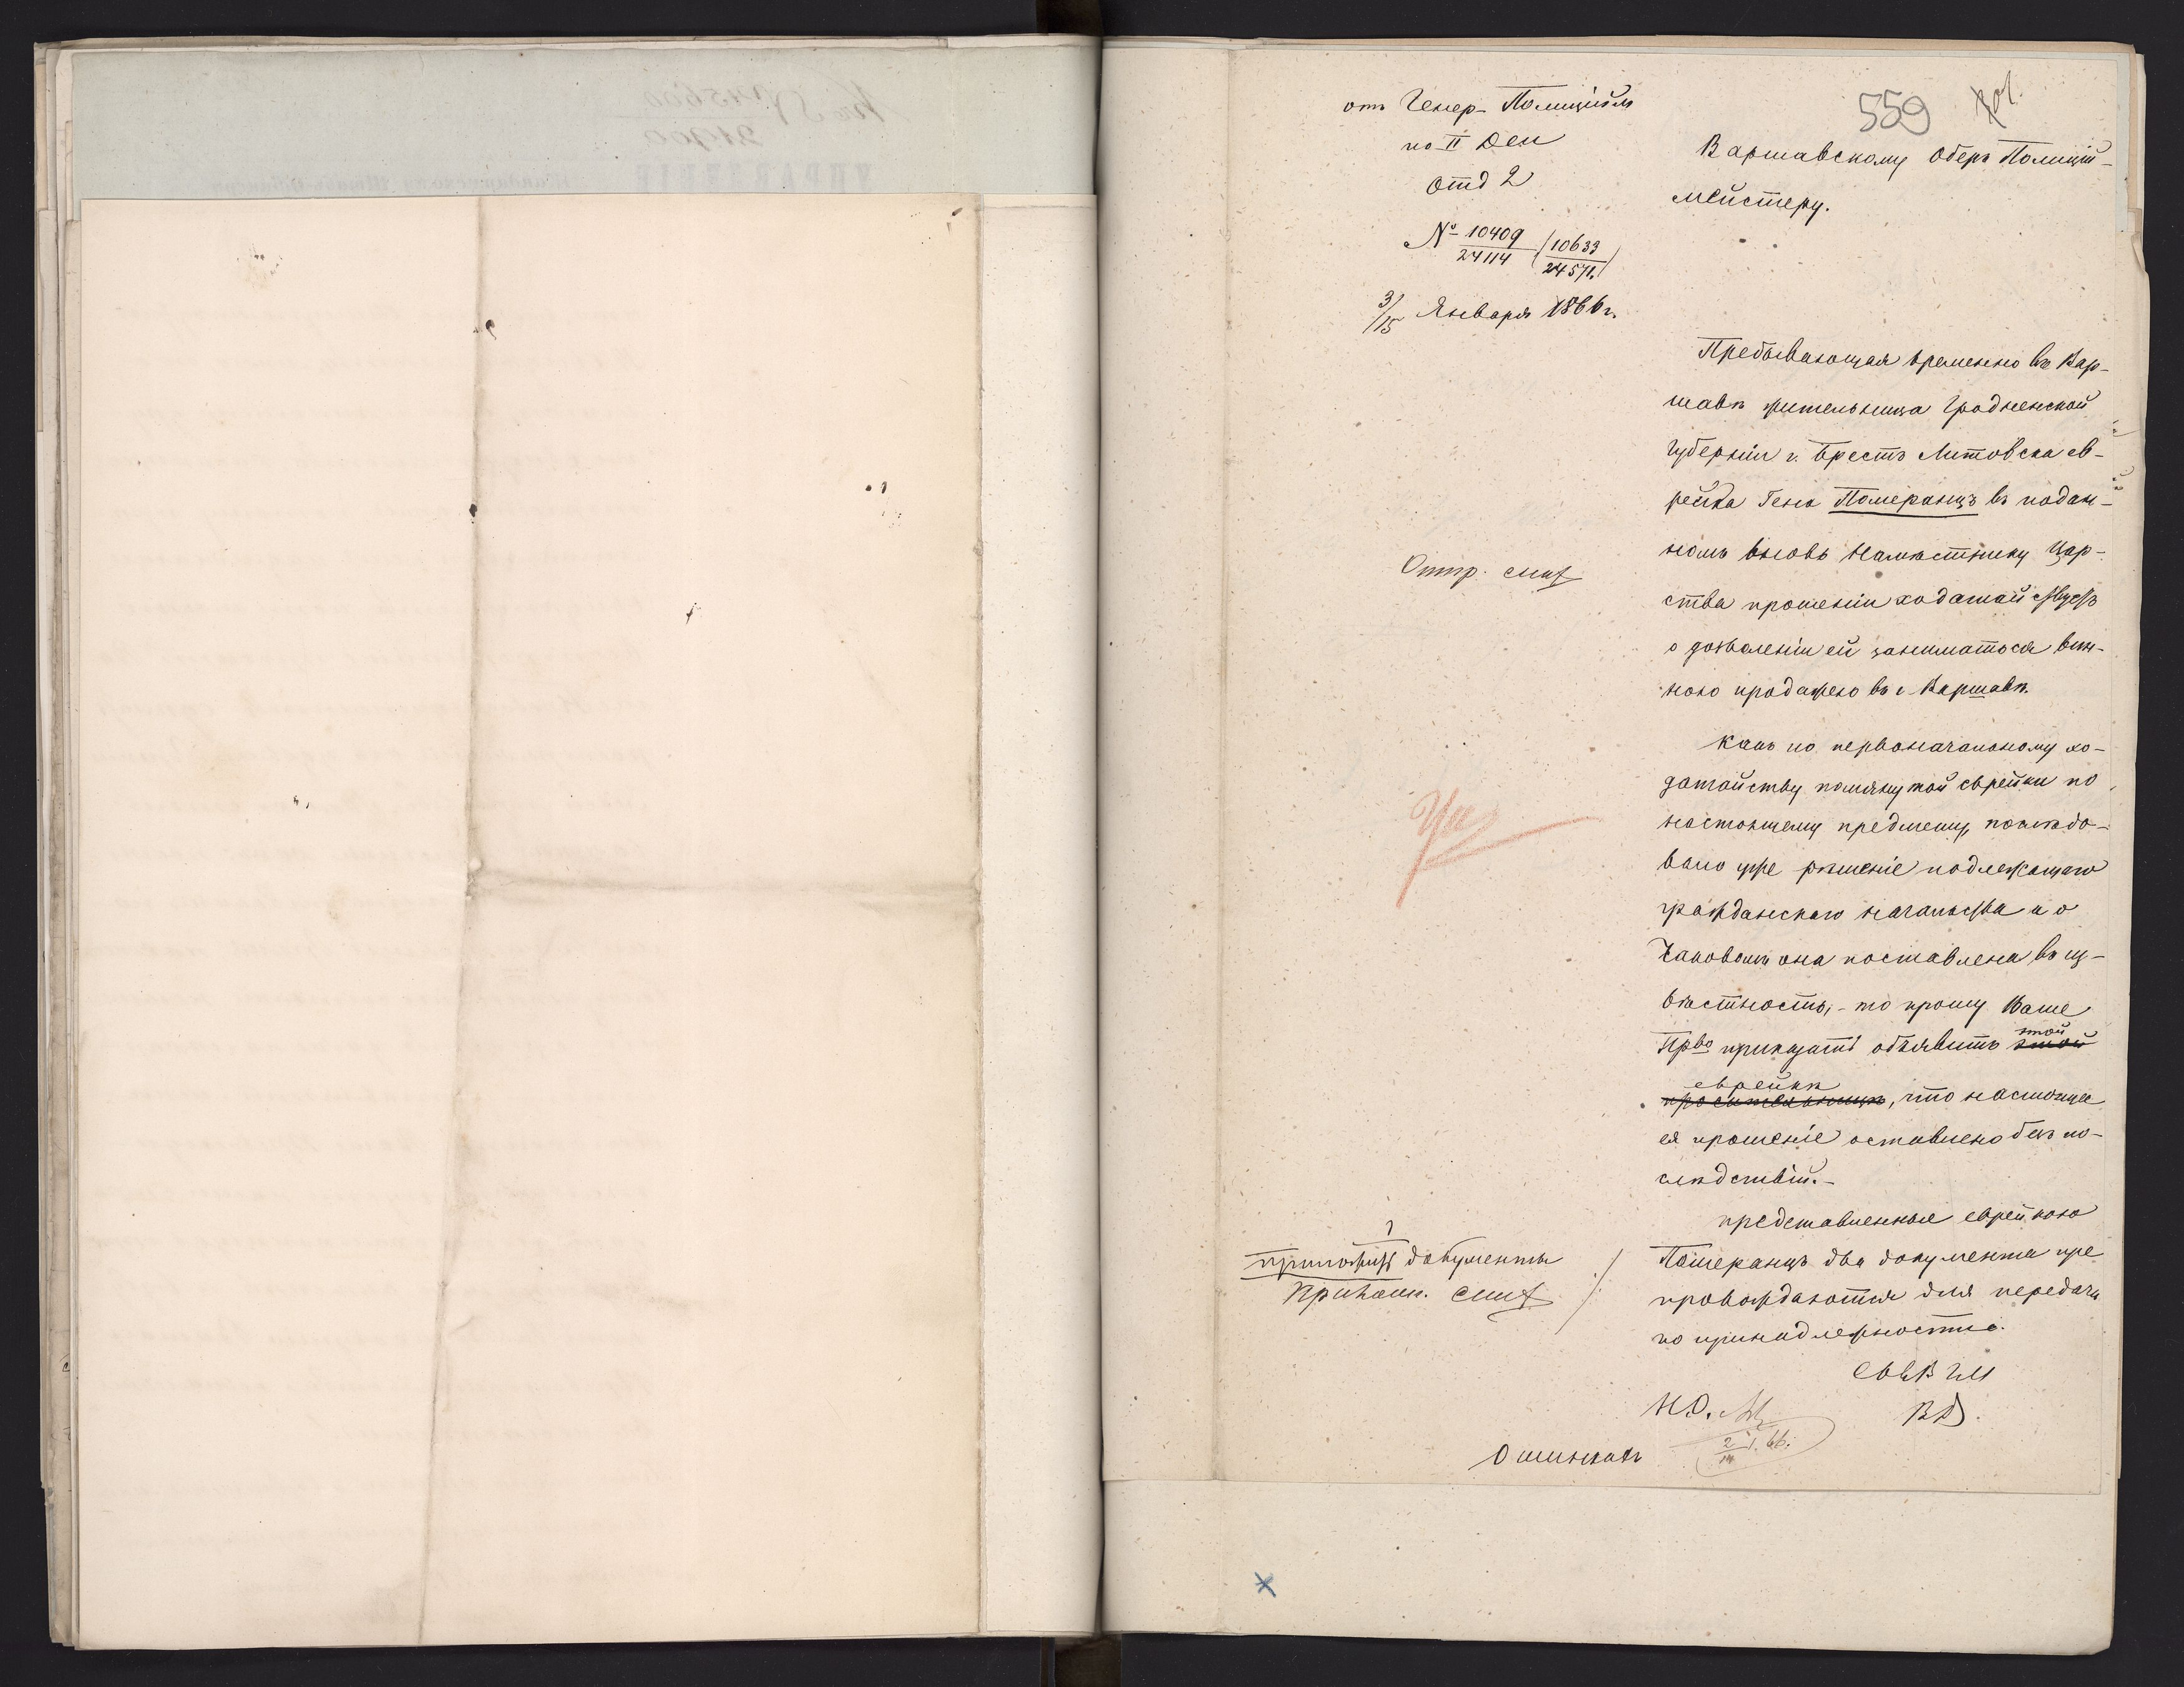 559
отъ Генер-Полиціймъ
по II Ден
Отд 2
№ 10409/24114 (10633/24571)
3/15 Января 1866 г.
Варшавскому Оберъ Полицій-
мейстеру.
Пребывающая временно въ Вар-
шавѣ жительница Гродненской
Губерніи г. Брестъ Литовска ев-
рейка Гена Померанцъ въ подан-
номъ вновь Намѣстнику Цар-
ства прошеніи ходатайствуетъ
о дозволеніи ей заниматься вин-
ною продажею въ г. Варшавѣ.
Какъ по первоначальному хо-
датайству помянутой еврейки по
настоящему предмету, послѣдо-
вало уже рѣшеніе подлежащаго
гражданскаго начальства и о
таковомъ она поставлена въ из-
вѣстность, - то прошу Ваше
Прво приказать объявить этой
еврейкѣ, что настоящее
ея прошеніе оставлено безъ по-
слѣдствій. -
Представленные еврейкою
Померанцъ два документа пре
провождаются для передачи
по принадлежности.
Отпр.
документы
В Д.
2/14 I. 66.